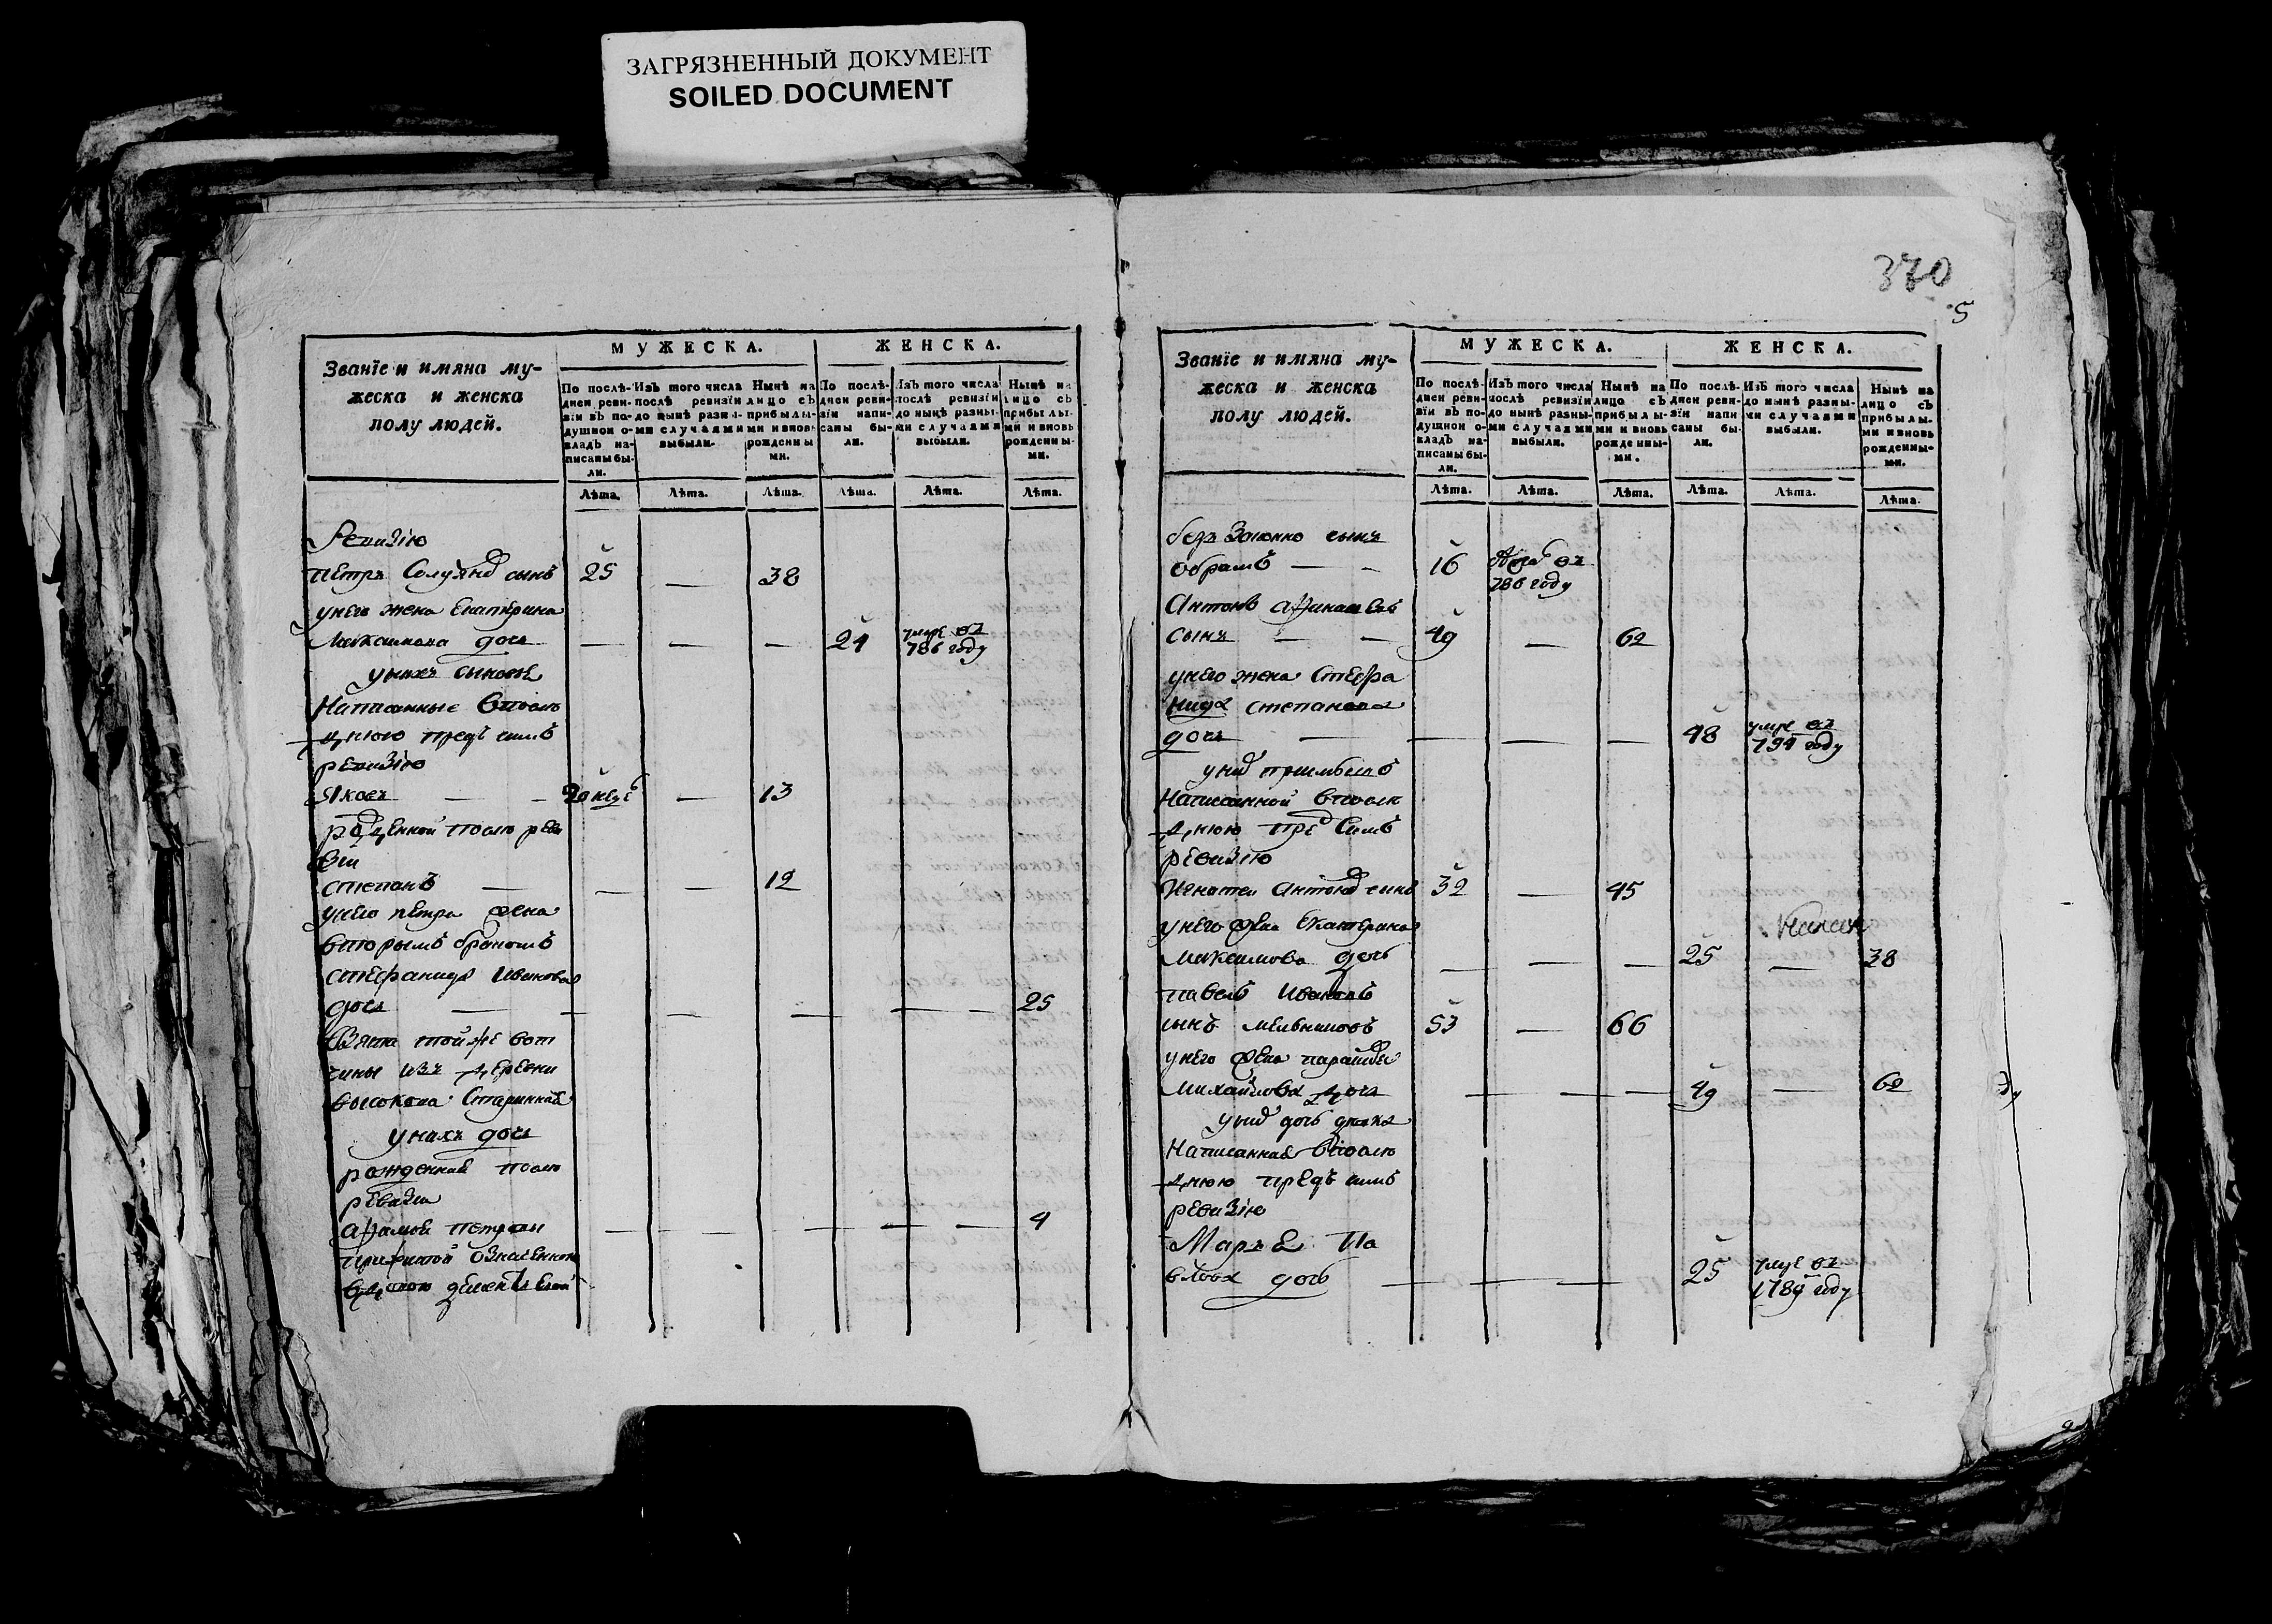 ЗАГРЯЗНЕННЫЙ ДОКУМЕНТ
SOILED DOCUMENT
370
5
Званїе и имяна му-
жеска и женска
полу людей.
МУЖЕСКА.
ЖЕНСКА.
По послѣ-
дней реви-
зїи въ по-
душной о-
кладъ на-
писаны бы-
ли.
Изъ того числа
послѣ ревизїи
до нынѣ разны-
ми случаями
выбыли.
Нынѣ на
лицо съ
прибылы-
ми и вновь
рожденны
ми.
По послѣ-
дней реви-
зїи напи-
саны бы-
ли.
Изъ того числа
послѣ ревизїи
до нынѣ разны-
ми случаями
выбыли.
Нынѣ на
лицо съ
прибылы-
ми и вновь
рожденны-
ми.
Лѣта. Лѣта. Лѣта. Лѣта. Лѣта. Лѣта.
Ревизїю
петръ сынъ 25 — 38
унего жена Екатерина
Максимова дочь — — — 24 умре въ 786 году
унихъ сыновя
Написанные впослѣ
днюю предъ симъ
ревизїю
Яковъ — 13
рожденной послѣ реви
зїи
степанъ — — — 12
унего петра жена
вторымъ бракомъ
стефанида Иванова
дочь — — — — — 25
Взята тойже вот
чины изъ деревни
высокова Старинная
унихъ дочь
рожденная послѣ
ревизїи
петрова — — — — — 4
Званїе и имяна му-
жеска и женска
полу людей.
МУЖЕСКА.
ЖЕНСКА.
По послѣ-
дней реви-
зїи въ по-
душной о-
кладъ на-
писаны бы-
ли.
Изъ того числа
послѣ ревизїи
до нынѣ разны-
ми случаями
выбыли.
Нынѣ на
лицо съ
прибылы-
ми и вновь
рожденны-
ми.
По послѣ-
дней реви-
зїи напи
саны бы-
ли.
Изъ того числа
до нынѣ разны-
ми случаями
выбыли.
Нынѣ на
лицо съ
прибылы-
ми и вновь
рожденны-
ми.
Лѣта. Лѣта. Лѣта. Лѣта. Лѣта. Лѣта.
сынъ
— — 16 въ 786 году
Антонъ
сынъ — — 49 — 62
унего жена Стефа
нида степанова
дочь — — — — 48 умре въ 794 году
Написанной впослѣ
днюю предъ симъ
ревизїю
Игнатей Антоновъ сынъ 32 — 45
унего жена Екатерина
Максимова дочь — — — 25 — 38
павелъ Ивановъ
сынъ мельниковъ 53 — 66
унего жена
михайлова дочь — — — 49 — 62
дочь девка
Написанная впослѣ
днюю предъ симъ
ревизїю
Марья Па
влова дочь — — — 25 умре въ 1789 году